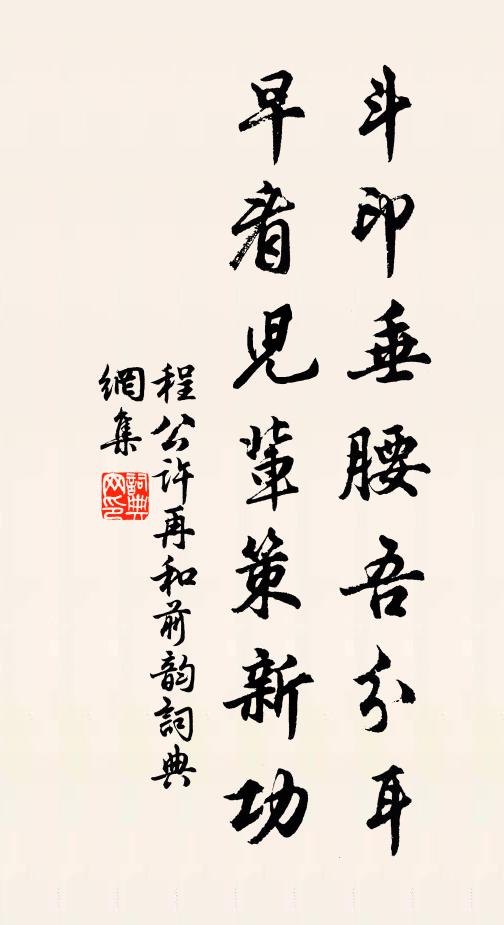 斗印垂腰吾分耳
早看児輩策新功
程公許再和前韵詞典
網集
詞典網印